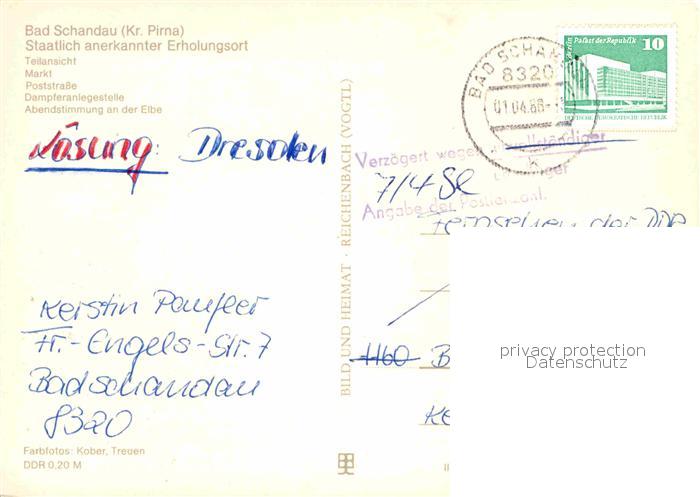 Bad Schandau (Kr. Pirna)
Staatlich anerkannter Erholungsort
Teilansicht
Markt
Poststraße
Dampferanlegestelle
Abendstimmung an der Elbe
Lösung: Dresden
Kerstin
Fr.-Engels-Str. 7
Bad Schandau
8320
Farbfotos: Kober, Treuen
DDR 0,20 M
BILD UND HEIMAT · REICHENBACH (VOGTL)
BAD SCHAN
8320
01.04.88
Palast der Republik 10
DEUTSCHE DEMOKRATISCHE REPUBLIK
Verzögert wegen
Angabe der Postleitzahl.
Fernsehen der DDR
1160 B
privacy protection
Datenschutz